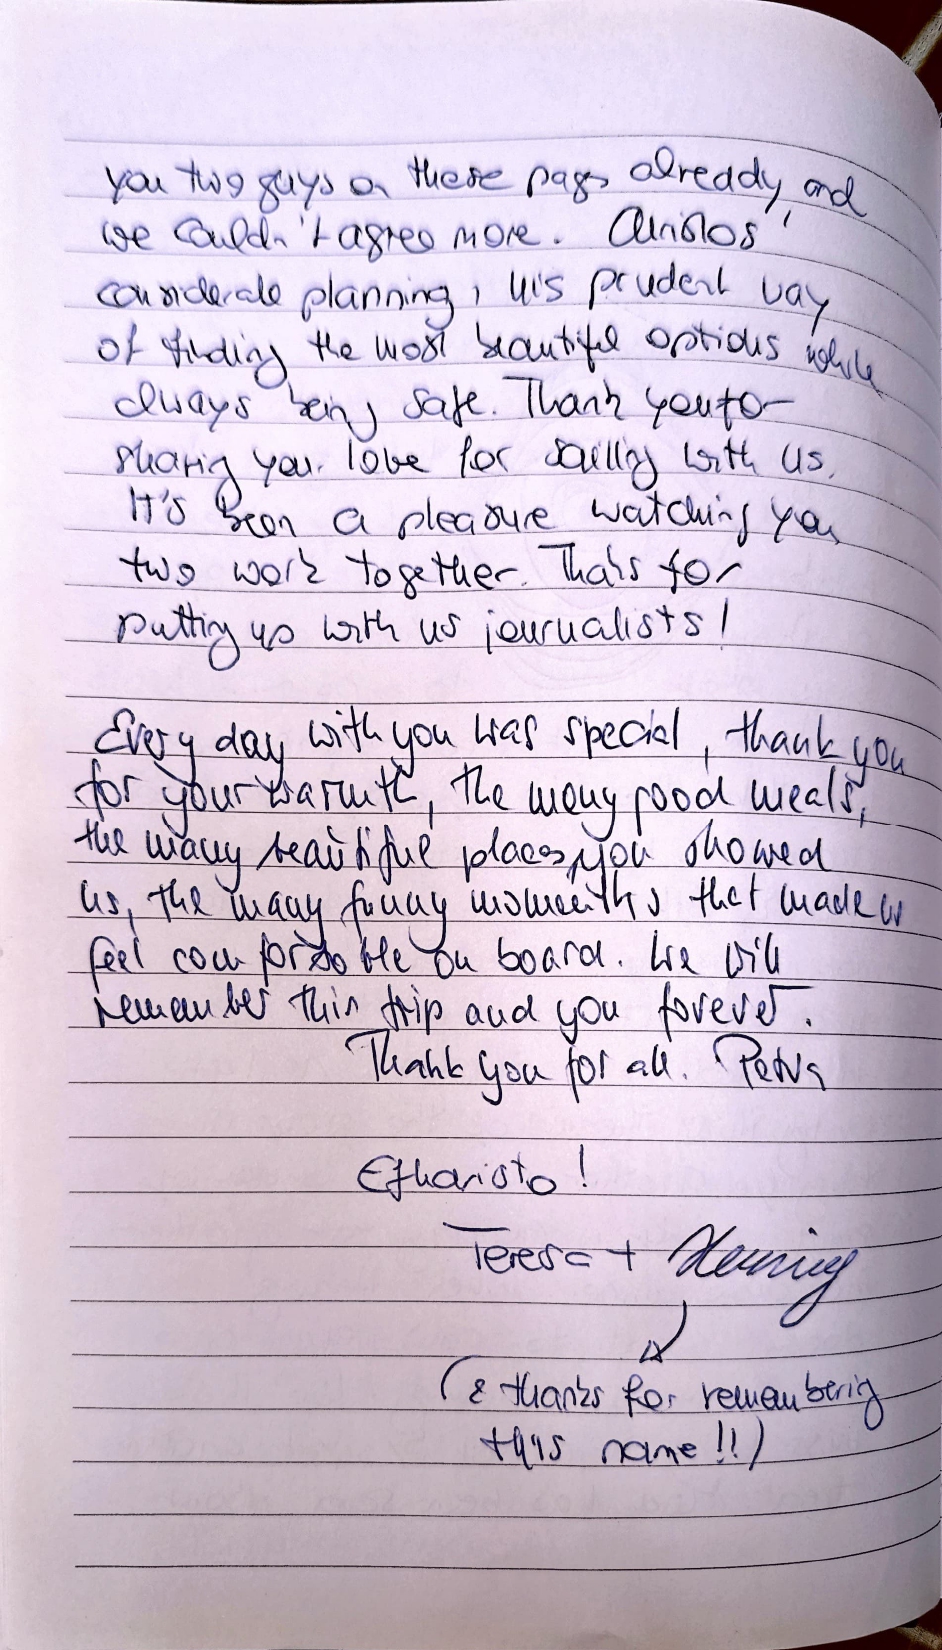 you two guys on these pages alreaddy, and
we couldn't agree more. Christos'
considerate planning, his prudent way
of finding the most beautiful options while
always being safe. Thank you for
sharing your love for sailing with us.
It's been a pleasure watching you
two work together. Thanks for
putting up with us journalists!
Every day with you was special, thank you
for your warmth, the many good meals,
the many beautiful places you showed
us, the many funny moments that made us
feel comfortable on board. We will
remember this trip and you forever.
Thank you for all. Petra
Efharisto!
Teresa + Henning
(& thanks for remembering
this name!!)